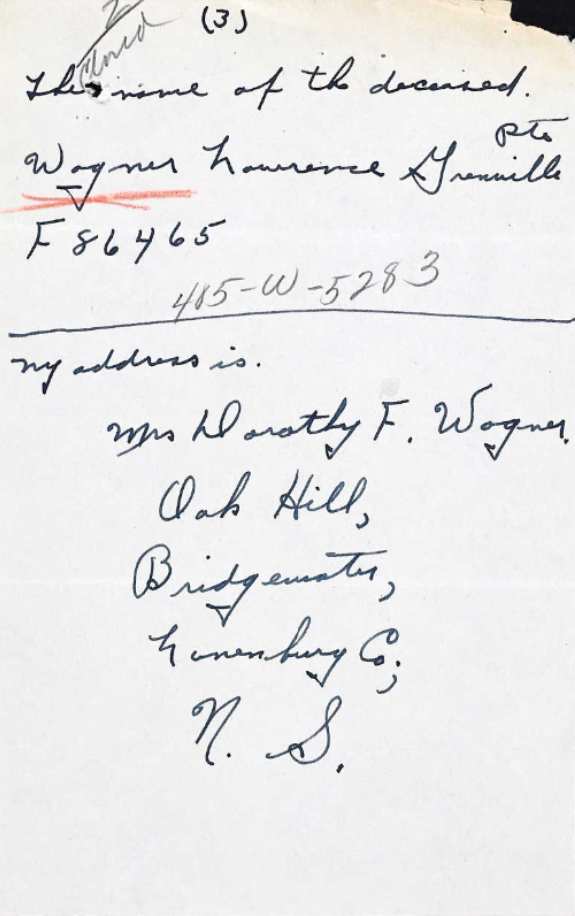 (3)
The name of the deceased.
Pte
Wagner Lawrence Grenville
F 86465
405-W-5283
My address is.
Mrs Dorothy F. Wagner.
Oak Hill,
Bridgewater,
Lunenburg Co.,
N. S.